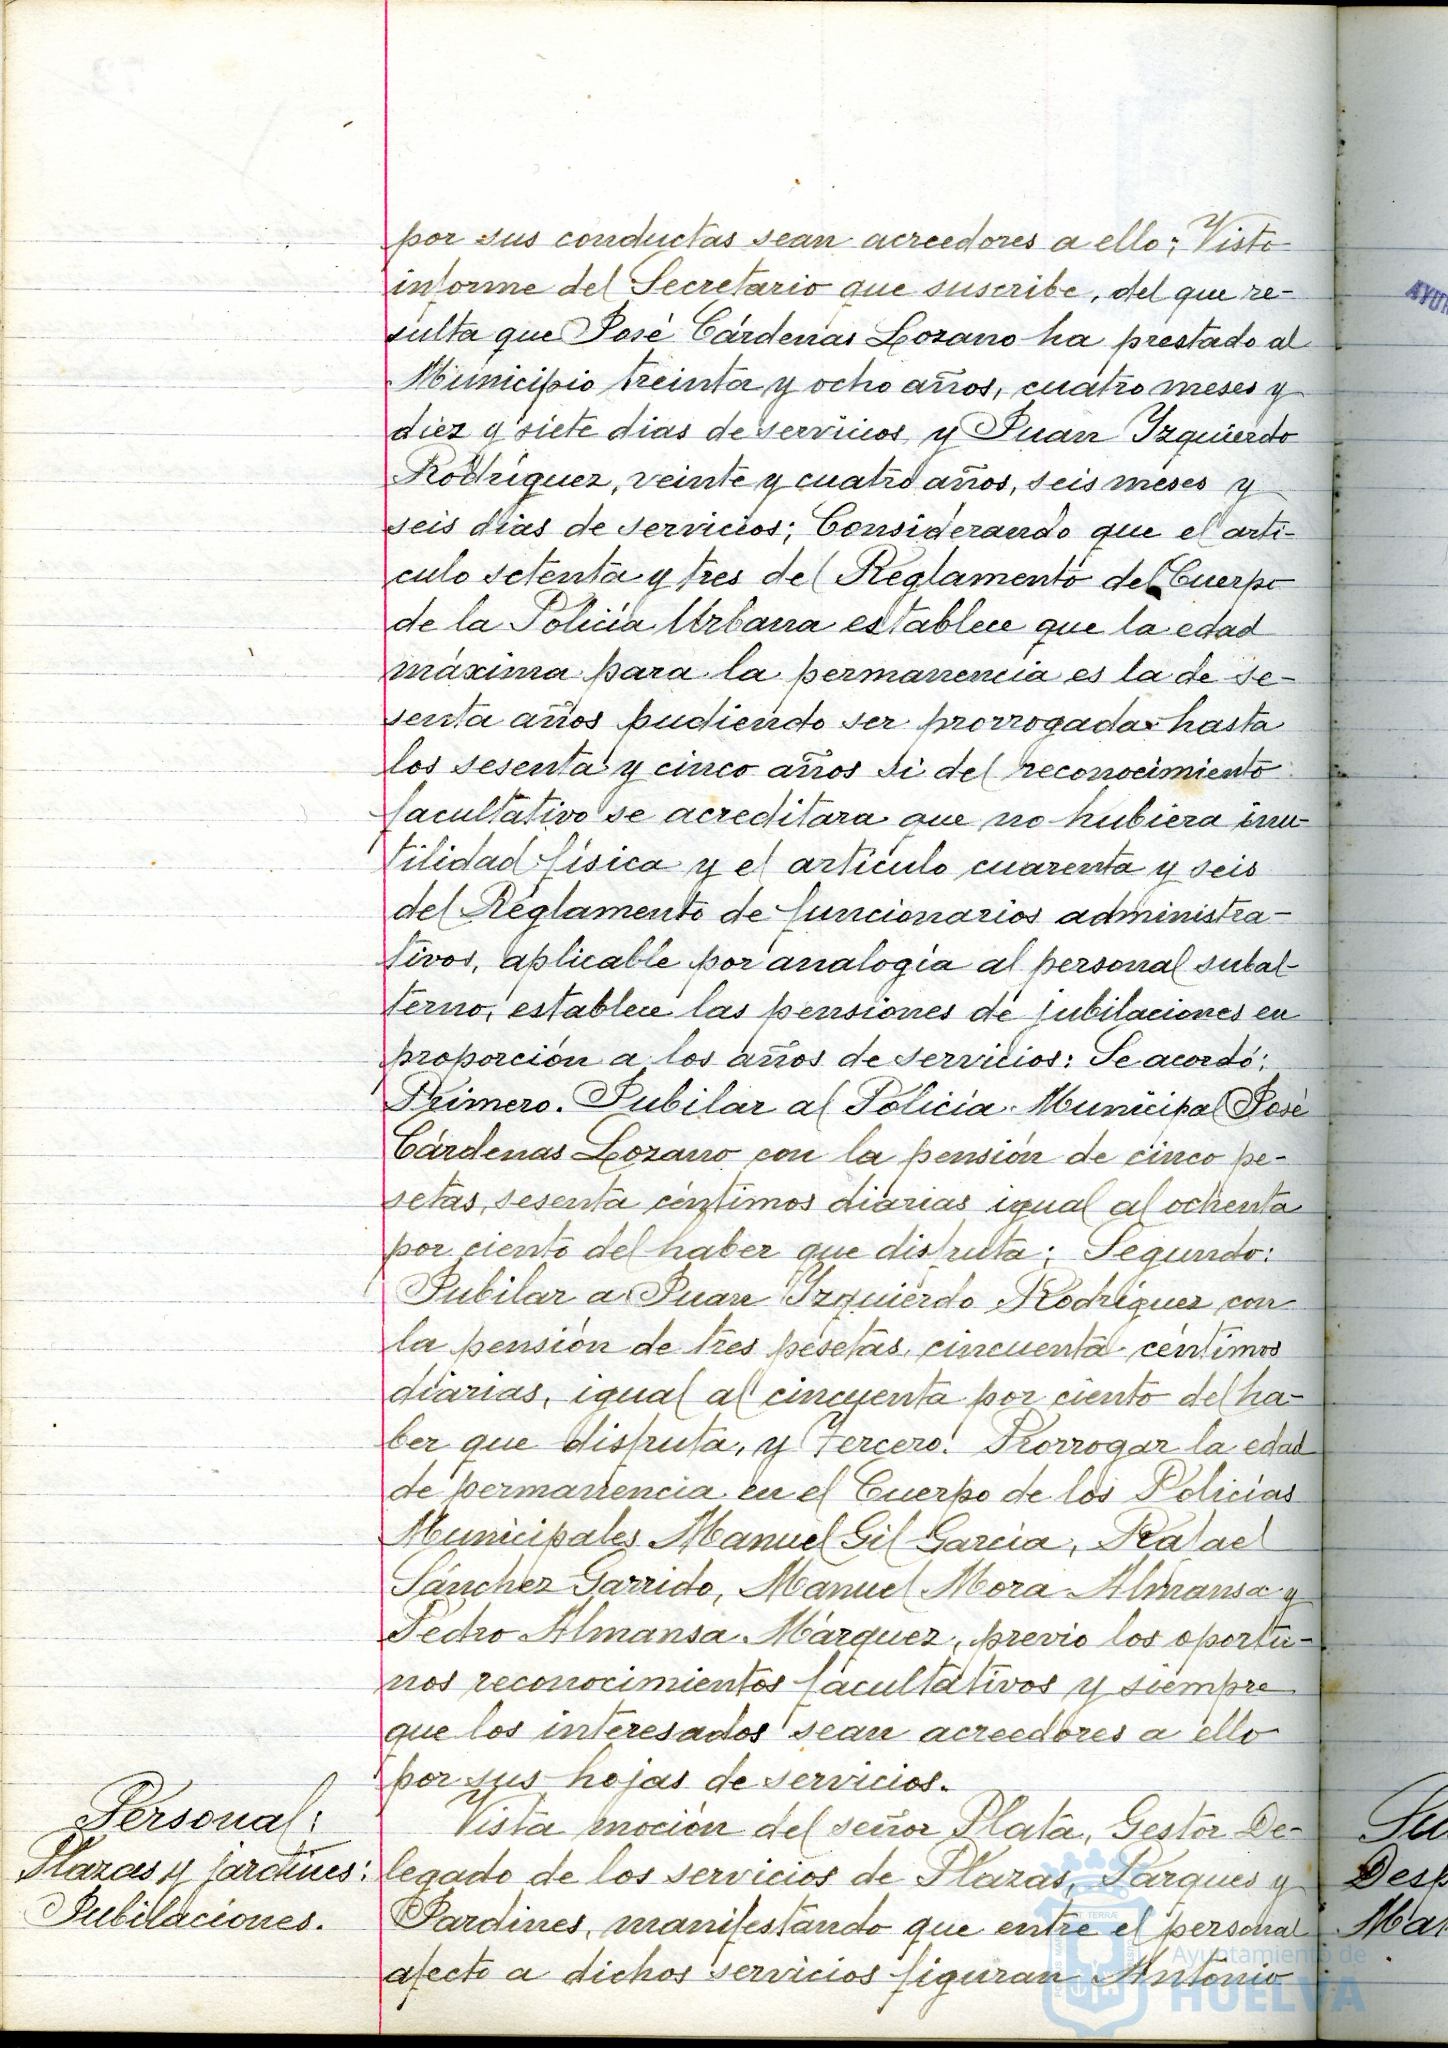 por sus conductas sean acreedores a ello; Visto
informe del Secretario que suscribe, del que re-
sulta que José Cárdenas Lozano ha prestado al
Municipio treinta y ocho años, cuatro meses y
diez y siete dias de servicios y Juan Izquierdo
Rodríguez, veinte y cuatro años, seis meses y
seis dias de servicios; Considerando que el arti-
culo setenta y tres del Reglamento del Cuerpo
de la Policía Urbana establece que la edad
máxima para la permanencia es la de se-
senta años pudiendo ser prorrogada hasta
los sesenta y cinco años si del reconocimiento
facultativo se acreditara que no hubiera inu-
tilidad física y el artículo cuarenta y seis
del Reglamento de funcionarios administra-
tivos, aplicable por analogía al personal subal-
terno, establece las pensiones de jubilaciones en
proporción a los años de servicios: Se acordó:
Primero. Jubilar al Policía Municipal José
Cárdenas Lozano con la pensión de cinco pe-
setas, sesenta céntimos diarias igual al ochenta
por ciento del haber que disfruta; Segundo:
Jubilar a Juan Izquierdo Rodríguez con
la pensión de tres pesetas, cincuenta céntimos
diarias, igual al cincuenta por ciento del ha-
ber que disfruta, y Tercero: Prorrogar la edad
de permanencia en el Cuerpo de los Policías
Municipales Manuel Gil García, Rafael
Sánchez Garrido, Manuel Mora Almansa y
Pedro Almansa Márquez, previo los oportu-
nos reconocimientos facultativos y siempre
que los interesados sean acreedores a ello
por sus hojas de servicios.
Personal:
Plazas y jardines:
Jubilaciones.
Vista moción del señor Plata, Gestor De-
legado de los servicios de Plazas, Parques y
Jardines, manifestando que entre el personal
afecto a dichos servicios figuran Antonio
Ayuntamiento de
HUELVA